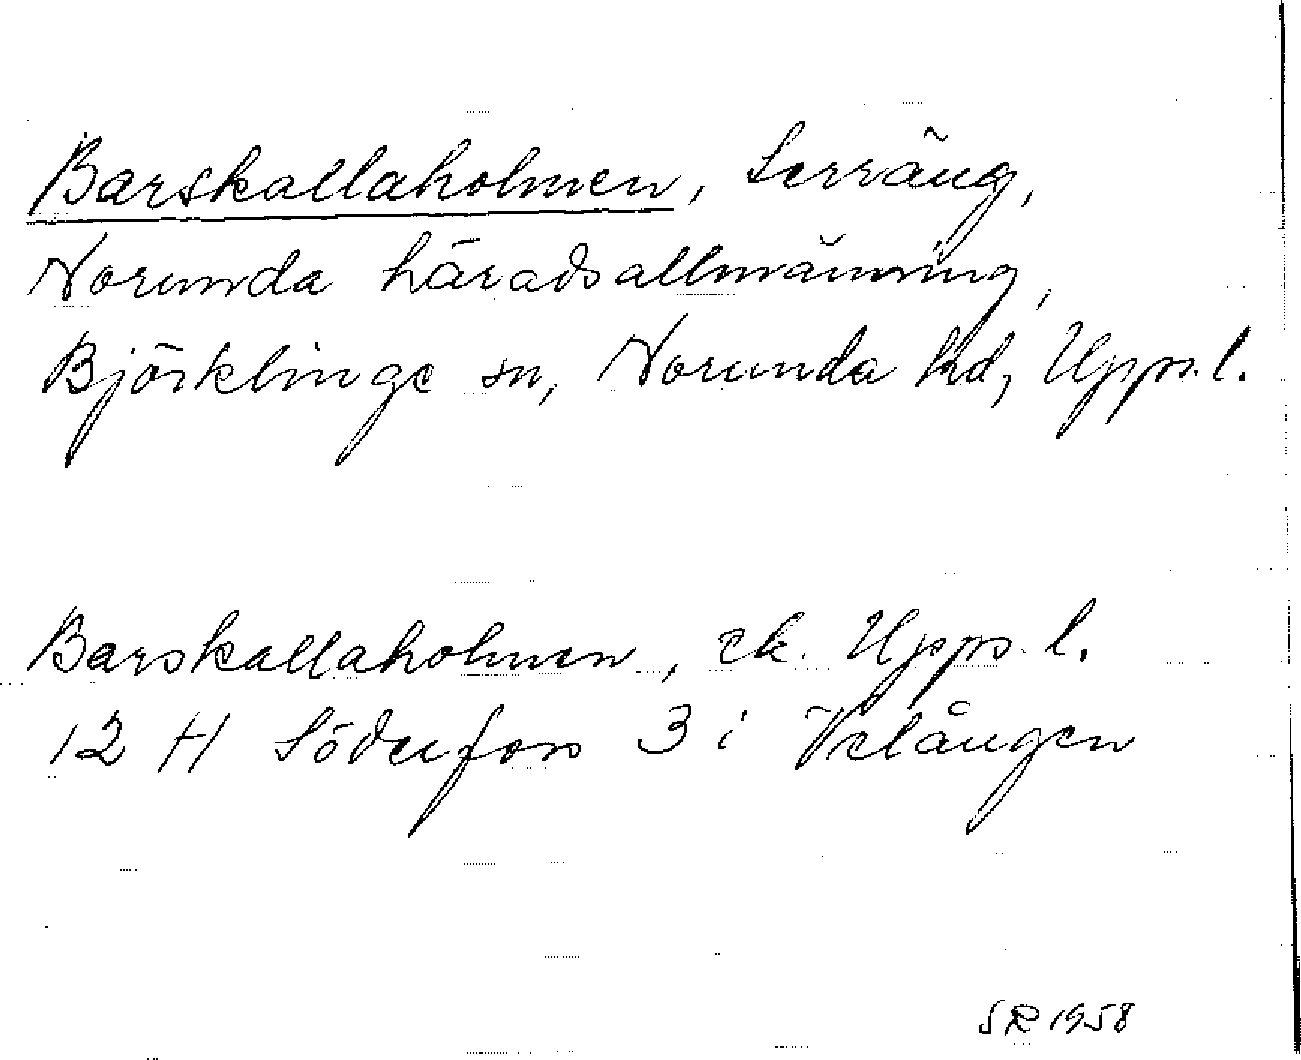 Barskallaholmen, terräng,
Norunda häradsallmänning,
Björklinge sn, Norunda hd, Upps. l.
Barskallaholmen, ek. Upps. l.
12 H Söderfors 3 i Velången
SR 1958